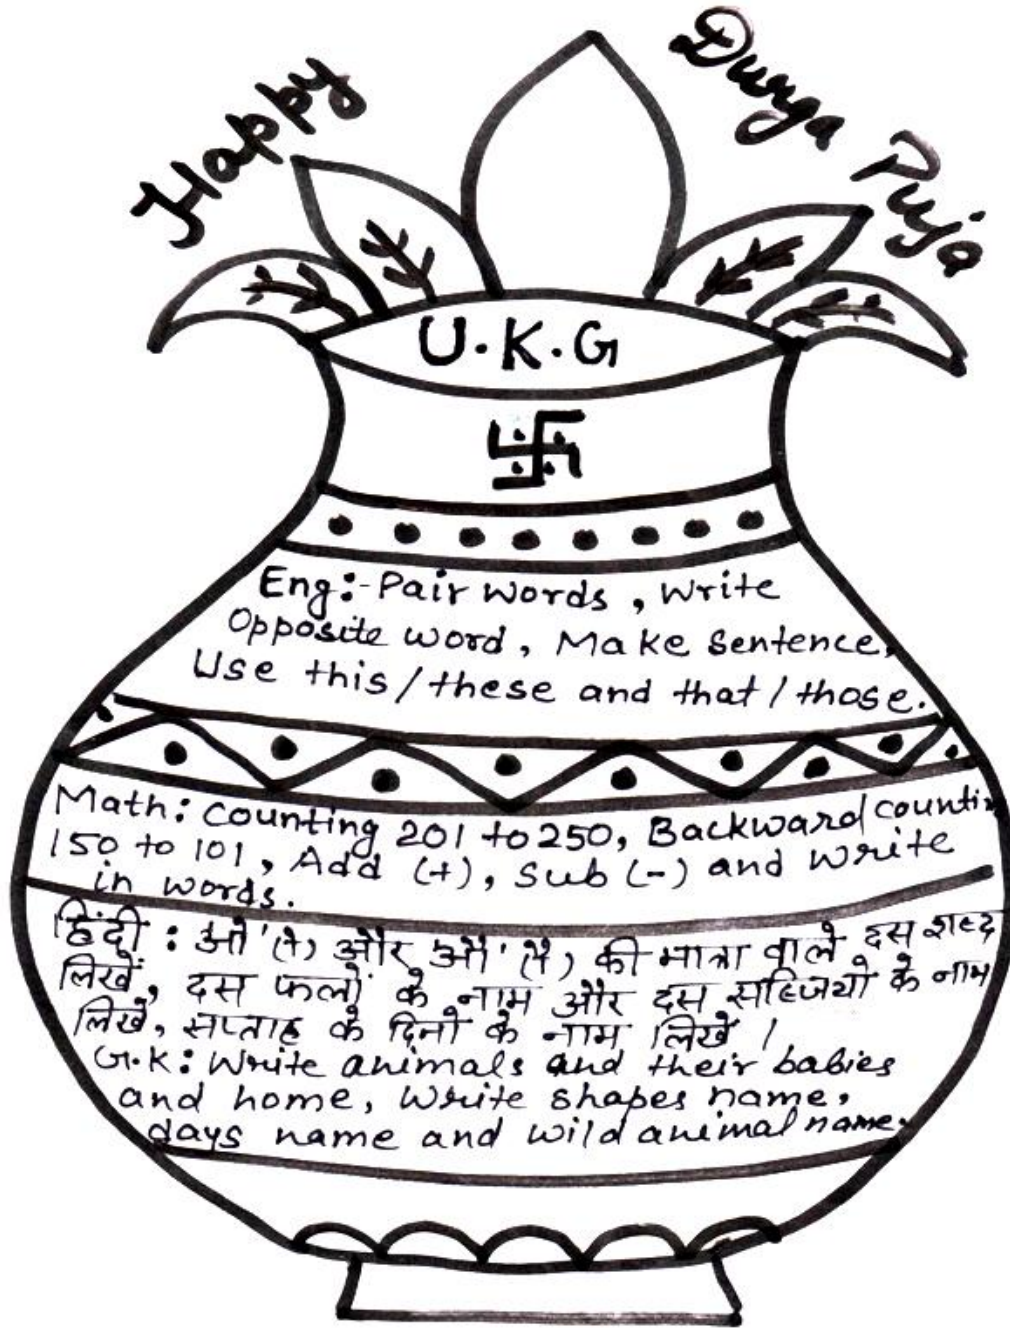 Happy Durga Puja
U.K.G
Eng:- Pair words, Write
Opposite word, Make sentence,
Use this/these and that/those.
Math: Counting 201 to 250, Backward counting
150 to 101, Add (+), Sub (-) and write
in words.
हिंदी: ओ (ो) और औ (ौ) की मात्रा वाले दस शब्द
लिखें, दस फलों के नाम और दस सब्जियों के नाम
लिखें, सप्ताह के दिनों के नाम लिखें।
G.K: Write animals and their babies
and home, write shapes name,
days name and wild animal name.